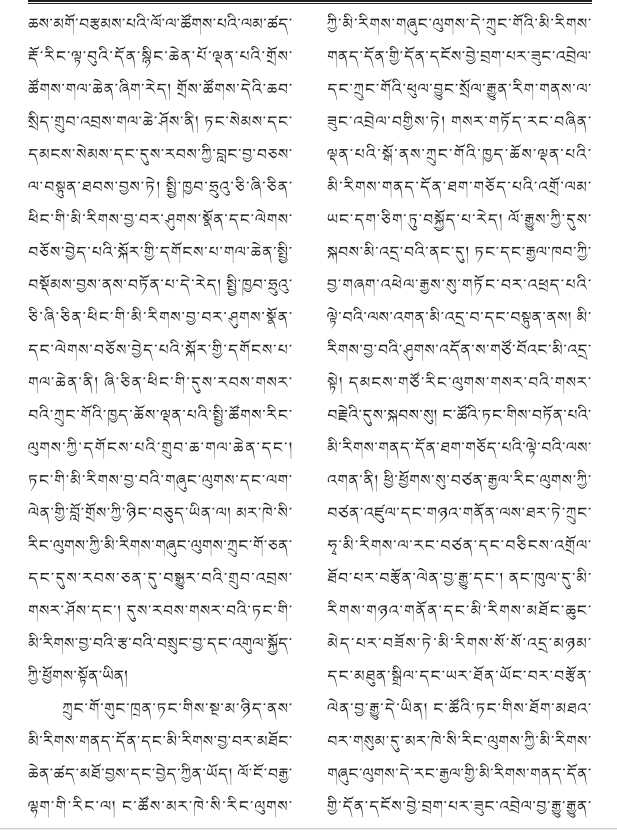 ཆས་མགོ་བརྩམས་པའི་ལོ་ལ་ཚོགས་པའི་ལམ་ཚད་
རྡོ་རིང་ལྟ་བུའི་དོན་སྙིང་ཆེན་པོ་ལྡན་པའི་གྲོས་
ཚོགས་གལ་ཆེན་ཞིག་རེད། གྲོས་ཚོགས་དེའི་ཆབ་
སྲིད་གྲུབ་འབྲས་གལ་ཆེ་ཤོས་ནི། ཏང་སེམས་དང་
དམངས་སེམས་དང་དུས་རབས་ཀྱི་བླང་བྱ་བཅས་
ལ་བསྟུན་ཐབས་བྱས་ཏེ། སྤྱི་ཁྱབ་ཧྲུའུ་ཅི་ཞི་ཅིན་
ཕིང་གི་མི་རིགས་བྱ་བར་ཤུགས་སྣོན་དང་ལེགས་
བཅོས་བྱེད་པའི་སྐོར་གྱི་དགོངས་པ་གལ་ཆེན་སྤྱི་
བསྡོམས་བྱས་ནས་བཏོན་པ་དེ་རེད། སྤྱི་ཁྱབ་ཧྲུའུ་
ཅི་ཞི་ཅིན་ཕིང་གི་མི་རིགས་བྱ་བར་ཤུགས་སྣོན་
དང་ལེགས་བཅོས་བྱེད་པའི་སྐོར་གྱི་དགོངས་པ་
གལ་ཆེན་ནི། ཞི་ཅིན་ཕིང་གི་དུས་རབས་གསར་
བའི་ཀྲུང་གོའི་ཁྱད་ཆོས་ལྡན་པའི་སྤྱི་ཚོགས་རིང་
ལུགས་ཀྱི་དགོངས་པའི་གྲུབ་ཆ་གལ་ཆེན་དང་།
ཏང་གི་མི་རིགས་བྱ་བའི་གཞུང་ལུགས་དང་ལག་
ལེན་གྱི་བློ་གྲོས་ཀྱི་ཉིང་བཅུད་ཡིན་ལ། མར་ཁེ་སི་
རིང་ལུགས་ཀྱི་མི་རིགས་གཞུང་ལུགས་ཀྲུང་གོ་ཅན་
དང་དུས་རབས་ཅན་དུ་བསྒྱུར་བའི་གྲུབ་འབྲས་
གསར་ཤོས་དང་། དུས་རབས་གསར་བའི་ཏང་གི་
མི་རིགས་བྱ་བའི་རྩ་བའི་བསྲུང་བྱ་དང་འགུལ་སྐྱོད་
ཀྱི་ཕྱོགས་སྟོན་ཡིན།
ཀྲུང་གོ་གུང་ཁྲན་ཏང་གིས་སྔ་མ་ཉིད་ནས་
མི་རིགས་གནད་དོན་དང་མི་རིགས་བྱ་བར་མཐོང་
ཆེན་ཚད་མཐོ་བྱས་དང་བྱེད་ཀྱིན་ཡོད། ལོ་ངོ་བརྒྱ་
ལྷག་གི་རིང་ལ། ང་ཚོས་མར་ཁེ་སི་རིང་ལུགས་
ཀྱི་མི་རིགས་གཞུང་ལུགས་དེ་ཀྲུང་གོའི་མི་རིགས་
གནད་དོན་གྱི་དོན་དངོས་བྱེ་བྲག་པར་ཟུང་འབྲེལ་
དང་ཀྲུང་གོའི་ཕུལ་བྱུང་སྲོལ་རྒྱུན་རིག་གནས་ལ་
ཟུང་འབྲེལ་བགྱིས་ཏེ། གསར་གཏོད་རང་བཞིན་
ལྡན་པའི་སྒོ་ནས་ཀྲུང་གོའི་ཁྱད་ཆོས་ལྡན་པའི་
མི་རིགས་གནད་དོན་ཐག་གཅོད་པའི་འགྲོ་ལམ་
ཡང་དག་ཅིག་ཏུ་བསྐྱོད་པ་རེད། ལོ་རྒྱུས་ཀྱི་དུས་
སྐབས་མི་འདྲ་བའི་ནང་དུ། ཏང་དང་རྒྱལ་ཁབ་ཀྱི་
བྱ་གཞག་འཕེལ་རྒྱས་སུ་གཏོང་བར་འཕྲད་པའི་
ལྟེ་བའི་ལས་འགན་མི་འདྲ་བ་དང་བསྟུན་ནས། མི་
རིགས་བྱ་བའི་ཤུགས་འདོན་ས་གཙོ་བོའང་མི་འདྲ་
སྟེ། དམངས་གཙོ་རིང་ལུགས་གསར་བའི་གསར་
བརྗེའི་དུས་སྐབས་སུ། ང་ཚོའི་ཏང་གིས་བཏོན་པའི་
མི་རིགས་གནད་དོན་ཐག་གཅོད་པའི་ལྟེ་བའི་ལས་
འགན་ནི། ཕྱི་ཕྱོགས་སུ་བཙན་རྒྱལ་རིང་ལུགས་ཀྱི་
བཙན་འཛུལ་དང་གཉའ་གནོན་ལས་ཐར་ཏེ་ཀྲུང་
ཧྭ་མི་རིགས་ལ་རང་བཙན་དང་བཅིངས་འགྲོལ་
ཐོབ་པར་བརྩོན་ལེན་བྱ་རྒྱུ་དང་། ནང་ཁུལ་དུ་མི་
རིགས་གཉའ་གནོན་དང་མི་རིགས་མཐོང་ཆུང་
མེད་པར་བཟོས་ཏེ་མི་རིགས་སོ་སོ་འདྲ་མཉམ་
དང་མཐུན་སྒྲིལ་དང་ཡར་ཐོན་ཡོང་བར་བརྩོན་
ལེན་བྱ་རྒྱུ་དེ་ཡིན། ང་ཚོའི་ཏང་གིས་ཐོག་མཐའ་
བར་གསུམ་དུ་མར་ཁེ་སི་རིང་ལུགས་ཀྱི་མི་རིགས་
གཞུང་ལུགས་དེ་རང་རྒྱལ་གྱི་མི་རིགས་གནད་དོན་
གྱི་དོན་དངོས་བྱེ་བྲག་པར་ཟུང་འབྲེལ་བྱ་རྒྱུ་རྒྱུན་